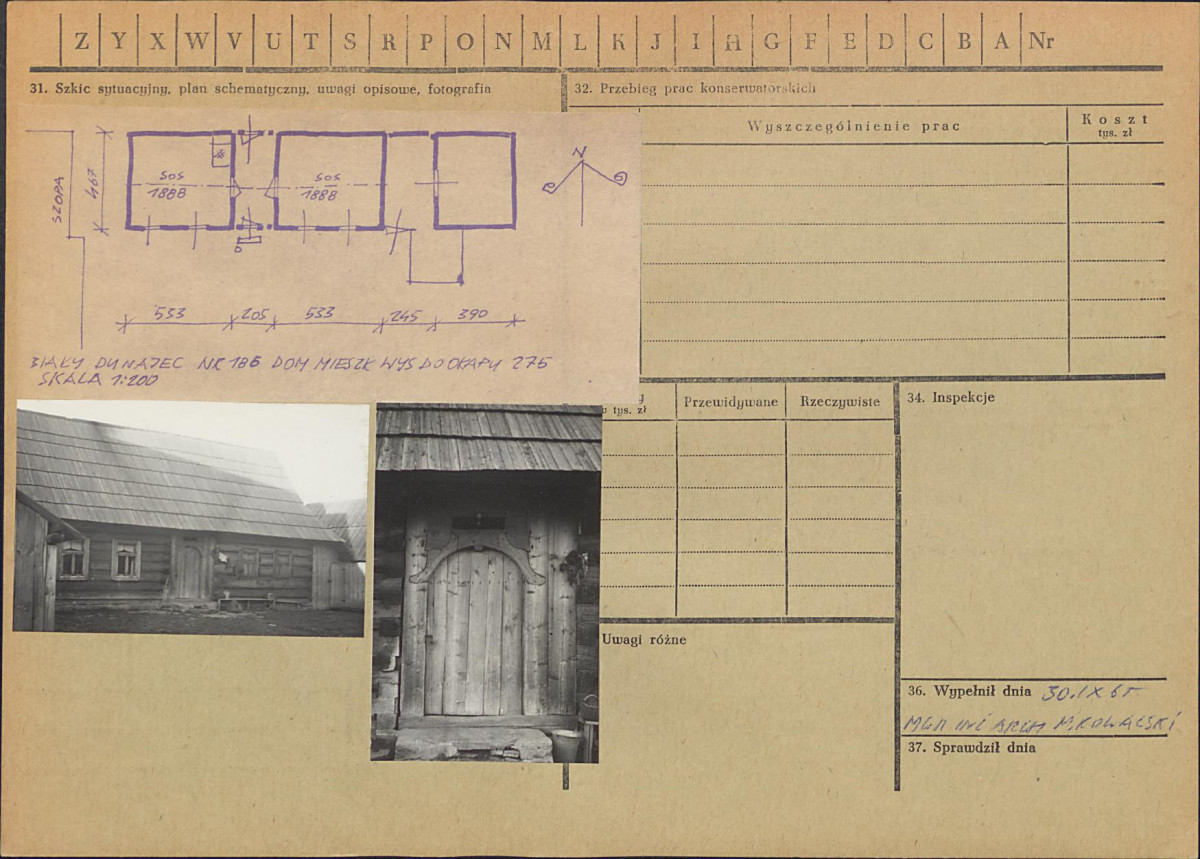 Z Y X W V U T S R P O N M L K J I H G F E D C B A Nr
31. Szkic sytuacyjny, plan schematyczny, uwagi opisowe, fotografia
32. Przebieg prac konserwatorskich
Wyszczególnienie prac
Koszt
tys. zł
SZOPA
467
SOS
1888
SOS
1888
N
533 205 533 245 390
BIAŁY DUNAJEC NR 186 DOM MIESZK WYS DO OKAPU 275
SKALA 1:200
tys. zł
Przewidywane
Rzeczywiste
34. Inspekcje
Uwagi różne
36. Wypełnił dnia 30.IX 65
MGR INŻ ARCH M. KOWALSKI
37. Sprawdził dnia